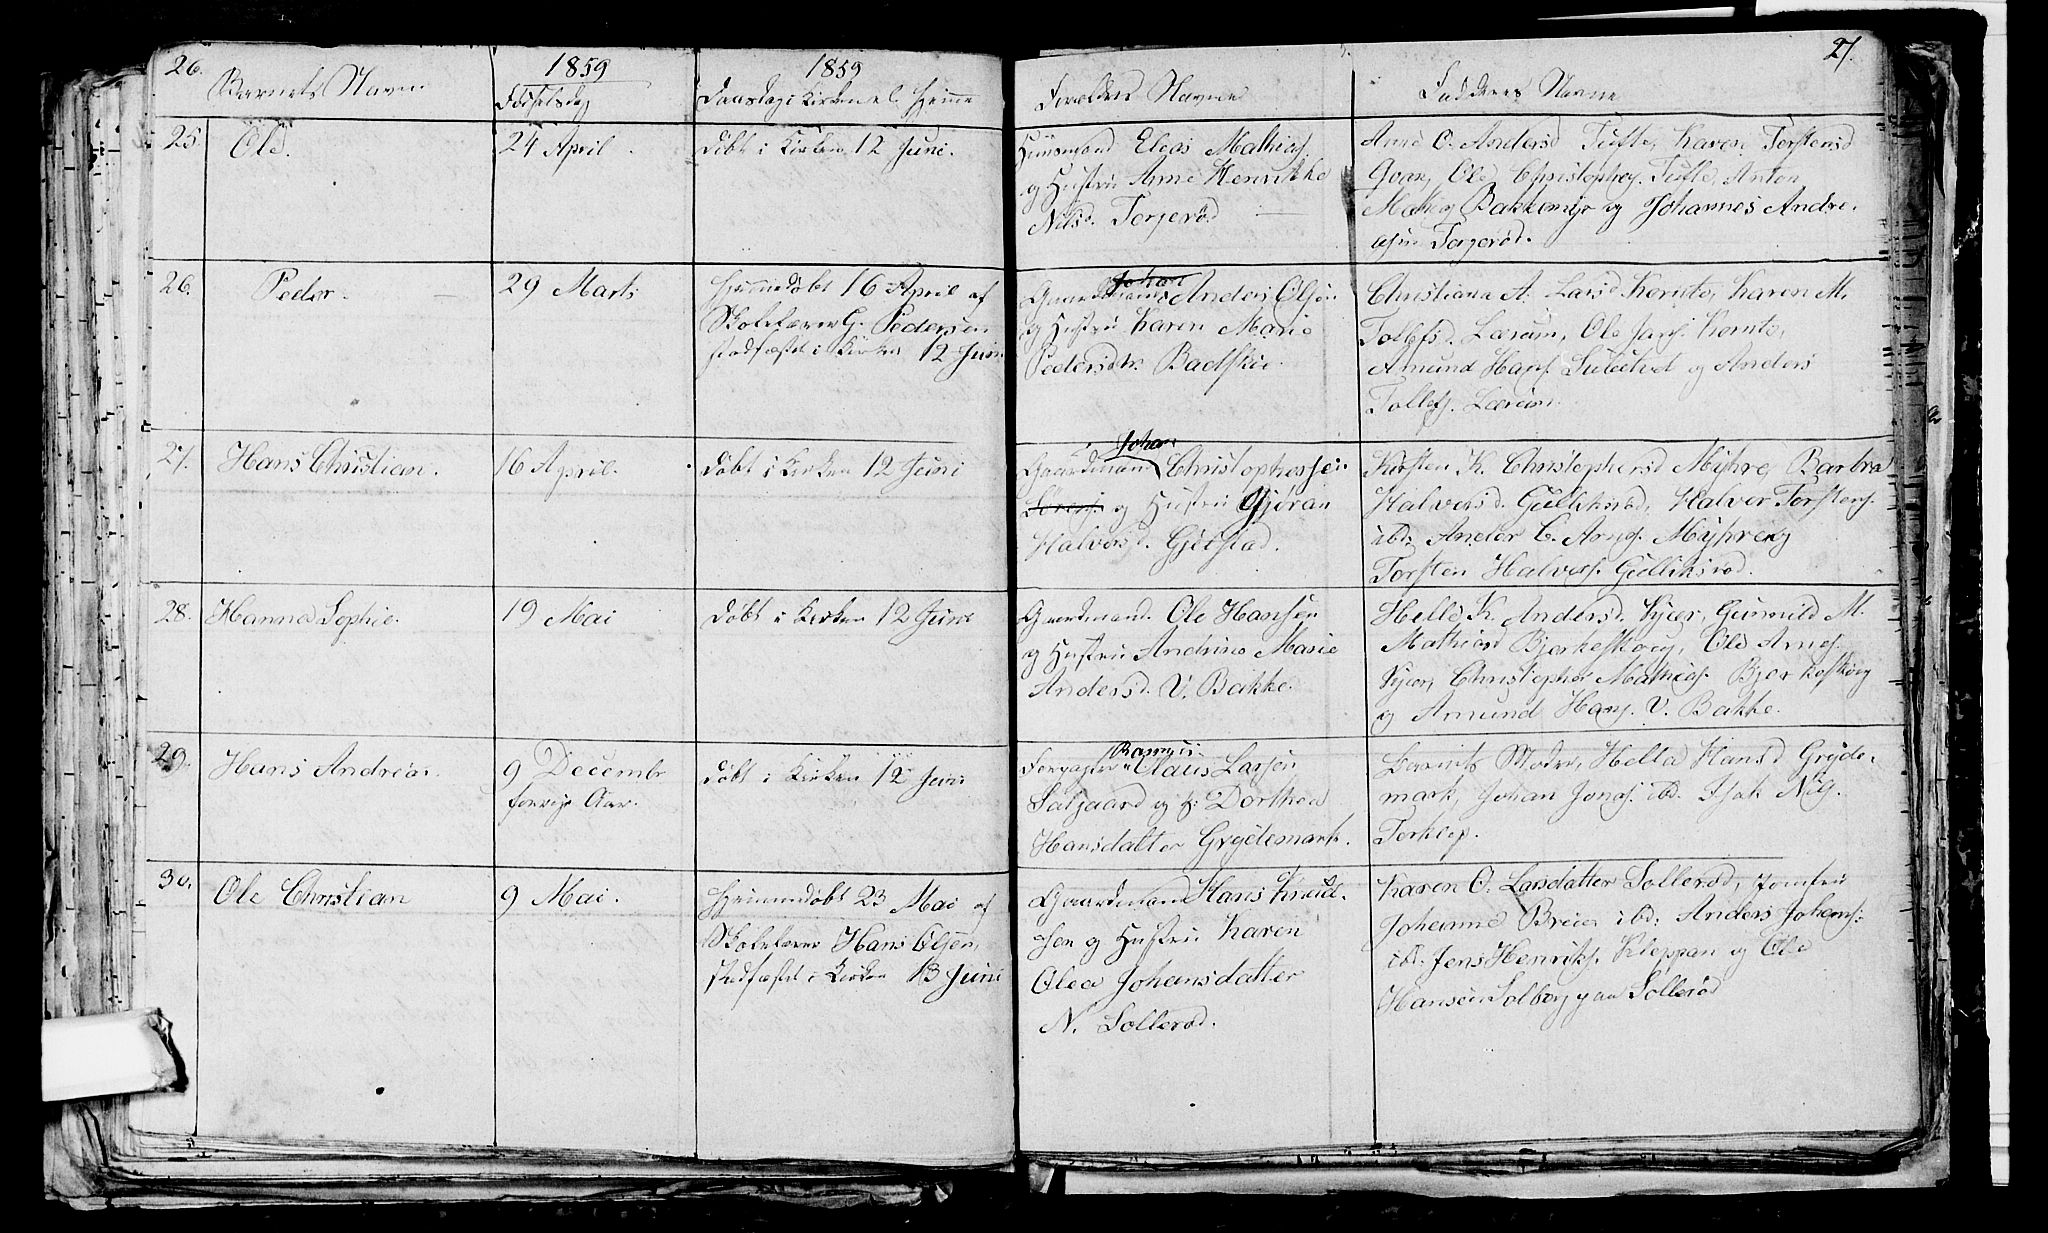 26.
1859
1859
27.
Barnets Navn
Fødselsdag
Daabsdag i Kirken el. Hjemme
Forældres Navne
Faddernes Navne
25. Ole.
24 April
døbt i Kirken 12 Juni.
Huusmand Elias Mathias.
og Hustru Anne Henrikke
Nilsd. Torjerød
Anne O. Andersd Tufte, Karen Torstensd
Goar, Ole Christophers. Tufte, Anton
Bakkemyr og Johannes Andre-
asen Torjerød.
26. Peder.
29 Marts
Hjemmedøbt 16 April af
Skolelærer G. Pedersen
stadfæstet i Kirken 12 Juni
Johan
Gaardmand Anders Olsen
og Hustru Karen Marie
Pedersdtr.
Christiane A. Larsd Kernto, Karen M.
Tollefsd. Lærum, Ole Jans. Kernto,
Amund Hans. og Anders
Tollefs. Lærum.
27. Hans Christian.
16 April.
døbt i Kirken 12 Juni
Johan
Gaardmand Christophersen
og Hustru Gjøran
Halvorsd. Gjelstad.
Kirsten K. Christophersd Myhre, Barbra
Halvorsd. Gulliksrød, Halvor Torstens.
ibd. Andor C. Arns. Myhre og
Torsten Halvors. Gulliksrød.
28. Hanna Sophie.
19 Mai
døbt i Kirken 12 Juni
Gaardmand Ole Hansen
og Hustru Andrine Marie
Andersd. V. Bakke.
Helle K. Andersd. Kjær, Gunnild M.
Mathiasd Bjerkeskoug, Ole Arns.
Kjær, Christopher Mathias. Bjerkeskoug
og Amund Hans. V. Bakke.
29. Hans Andreas.
9 Decembr
forrige Aar.
døbt i Kirken 12 Juni
Rasmus
Forpagter Claus Larsen
Salgaard og H: Dorthea
Hansdatter Grydemark.
Barnets Moder, Hella Hansd Gryde-
mark, Johan Jons. ibd. Isak Nils.
Torklep.
30. Ole Christian
9 Mai.
Hjemmedøbt 23 Mai af
Skolelærer Hans Olsen,
stadfæstet i Kirken 13 Juni
Gaardmand Hans Knud-
sen og Hustru Karen
Olea Johansdatter
N. Sollerød.
Karen O. Larsdatter Sollerød, Jomfru
Johanne ibd: Anders Johans:
ibd. Jens Henriks. Kleppan og Ole
Hansen Solberg paa Sollerød